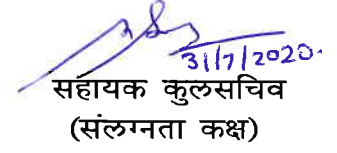 31/7/2020.
सहायक कुलसचिव
(संलग्नता कक्ष)